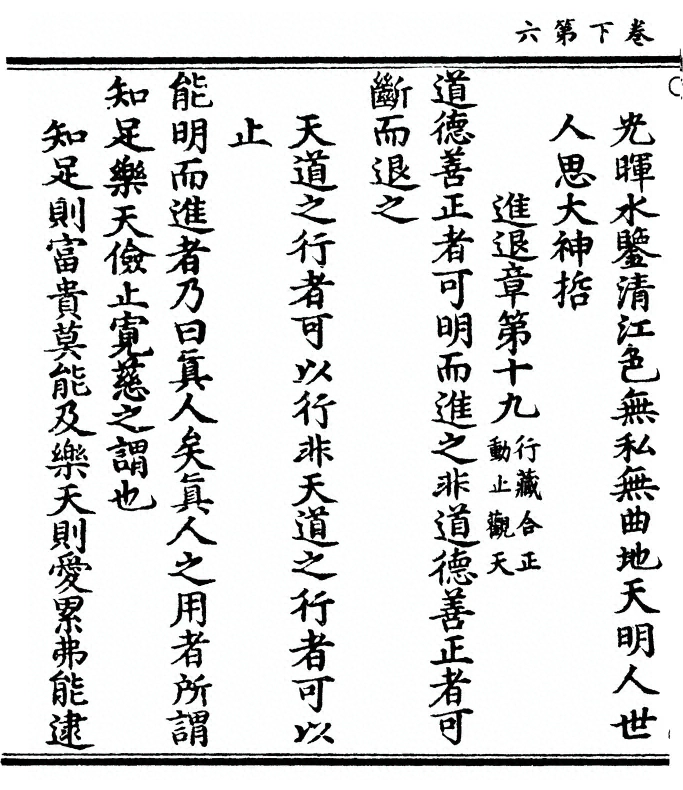 卷下第六
光暉水鑒清江色無私無曲地天明人世
人思大神哲
進退章第十九 行藏合正動止觀天
道德善正者可明而進之非道德善正者可
斷而退之
天道之行者可以行非天道之行者可以
止
能明而進者乃曰眞人矣眞人之用者所謂
知足樂天儉止寬慈之謂也
知足則富貴莫能及樂天則愛累弗能逮